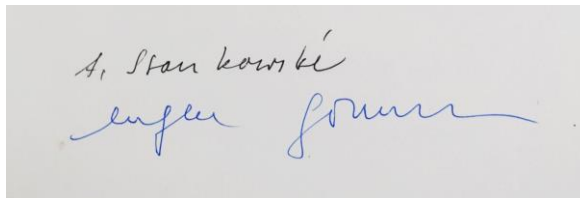 A. Stankowski
eugen gomringer